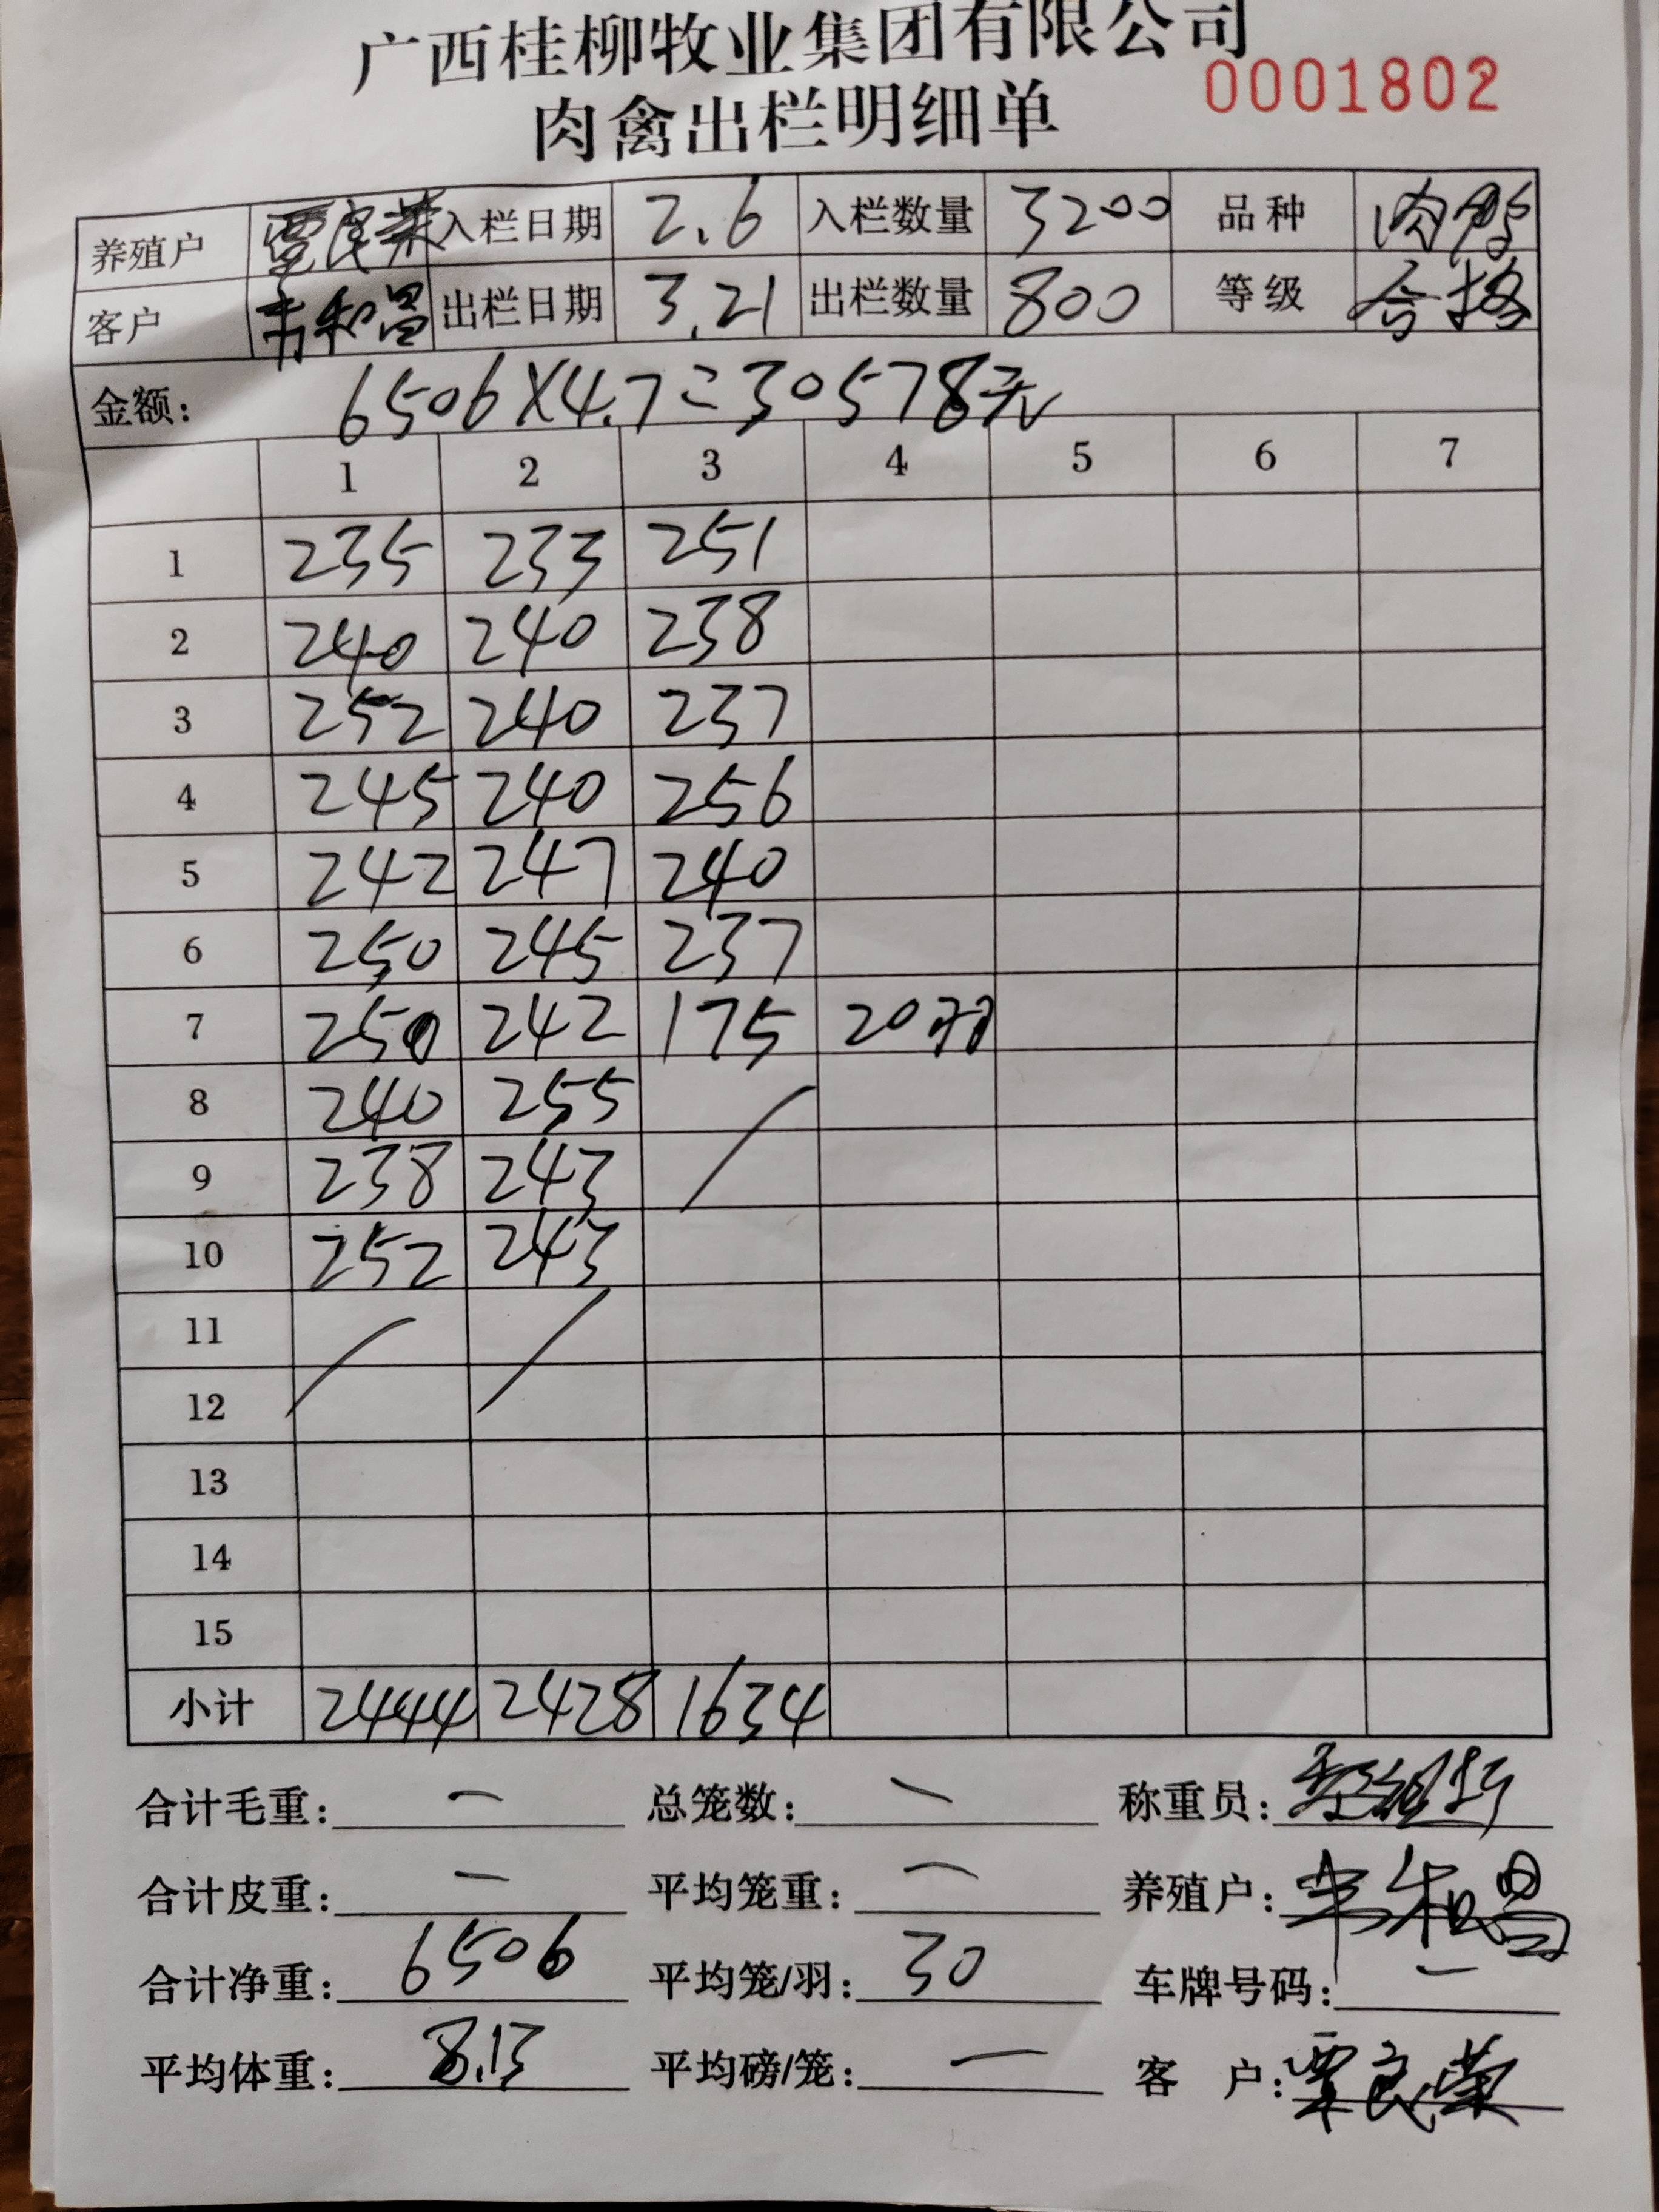 广西桂柳牧业集团有限公司
肉禽出栏明细单 0001802
养殖户 覃良荣 入栏日期 2.6 入栏数量 3200 品种 肉鸭
客户 韦和昌 出栏日期 3.21 出栏数量 800 等级 合格
金额: 6506×4.7=30578元
1 2 3 4 5 6 7
1 235 233 251
2 240 240 238
3 252 240 237
4 245 240 256
5 242 247 240
6 250 245 237
7 250 242 175 20羽
8 240 255
9 238 243
10 252 243
11
12
13
14
15
小计 2444 2428 1634
合计毛重: 一 总笼数: 一 称重员:
合计皮重: 一 平均笼重: 一 养殖户: 韦和昌
合计净重: 6506 平均笼/羽: 30 车牌号码: 一
平均体重: 8.13 平均磅/笼: 一 客 户: 覃良荣